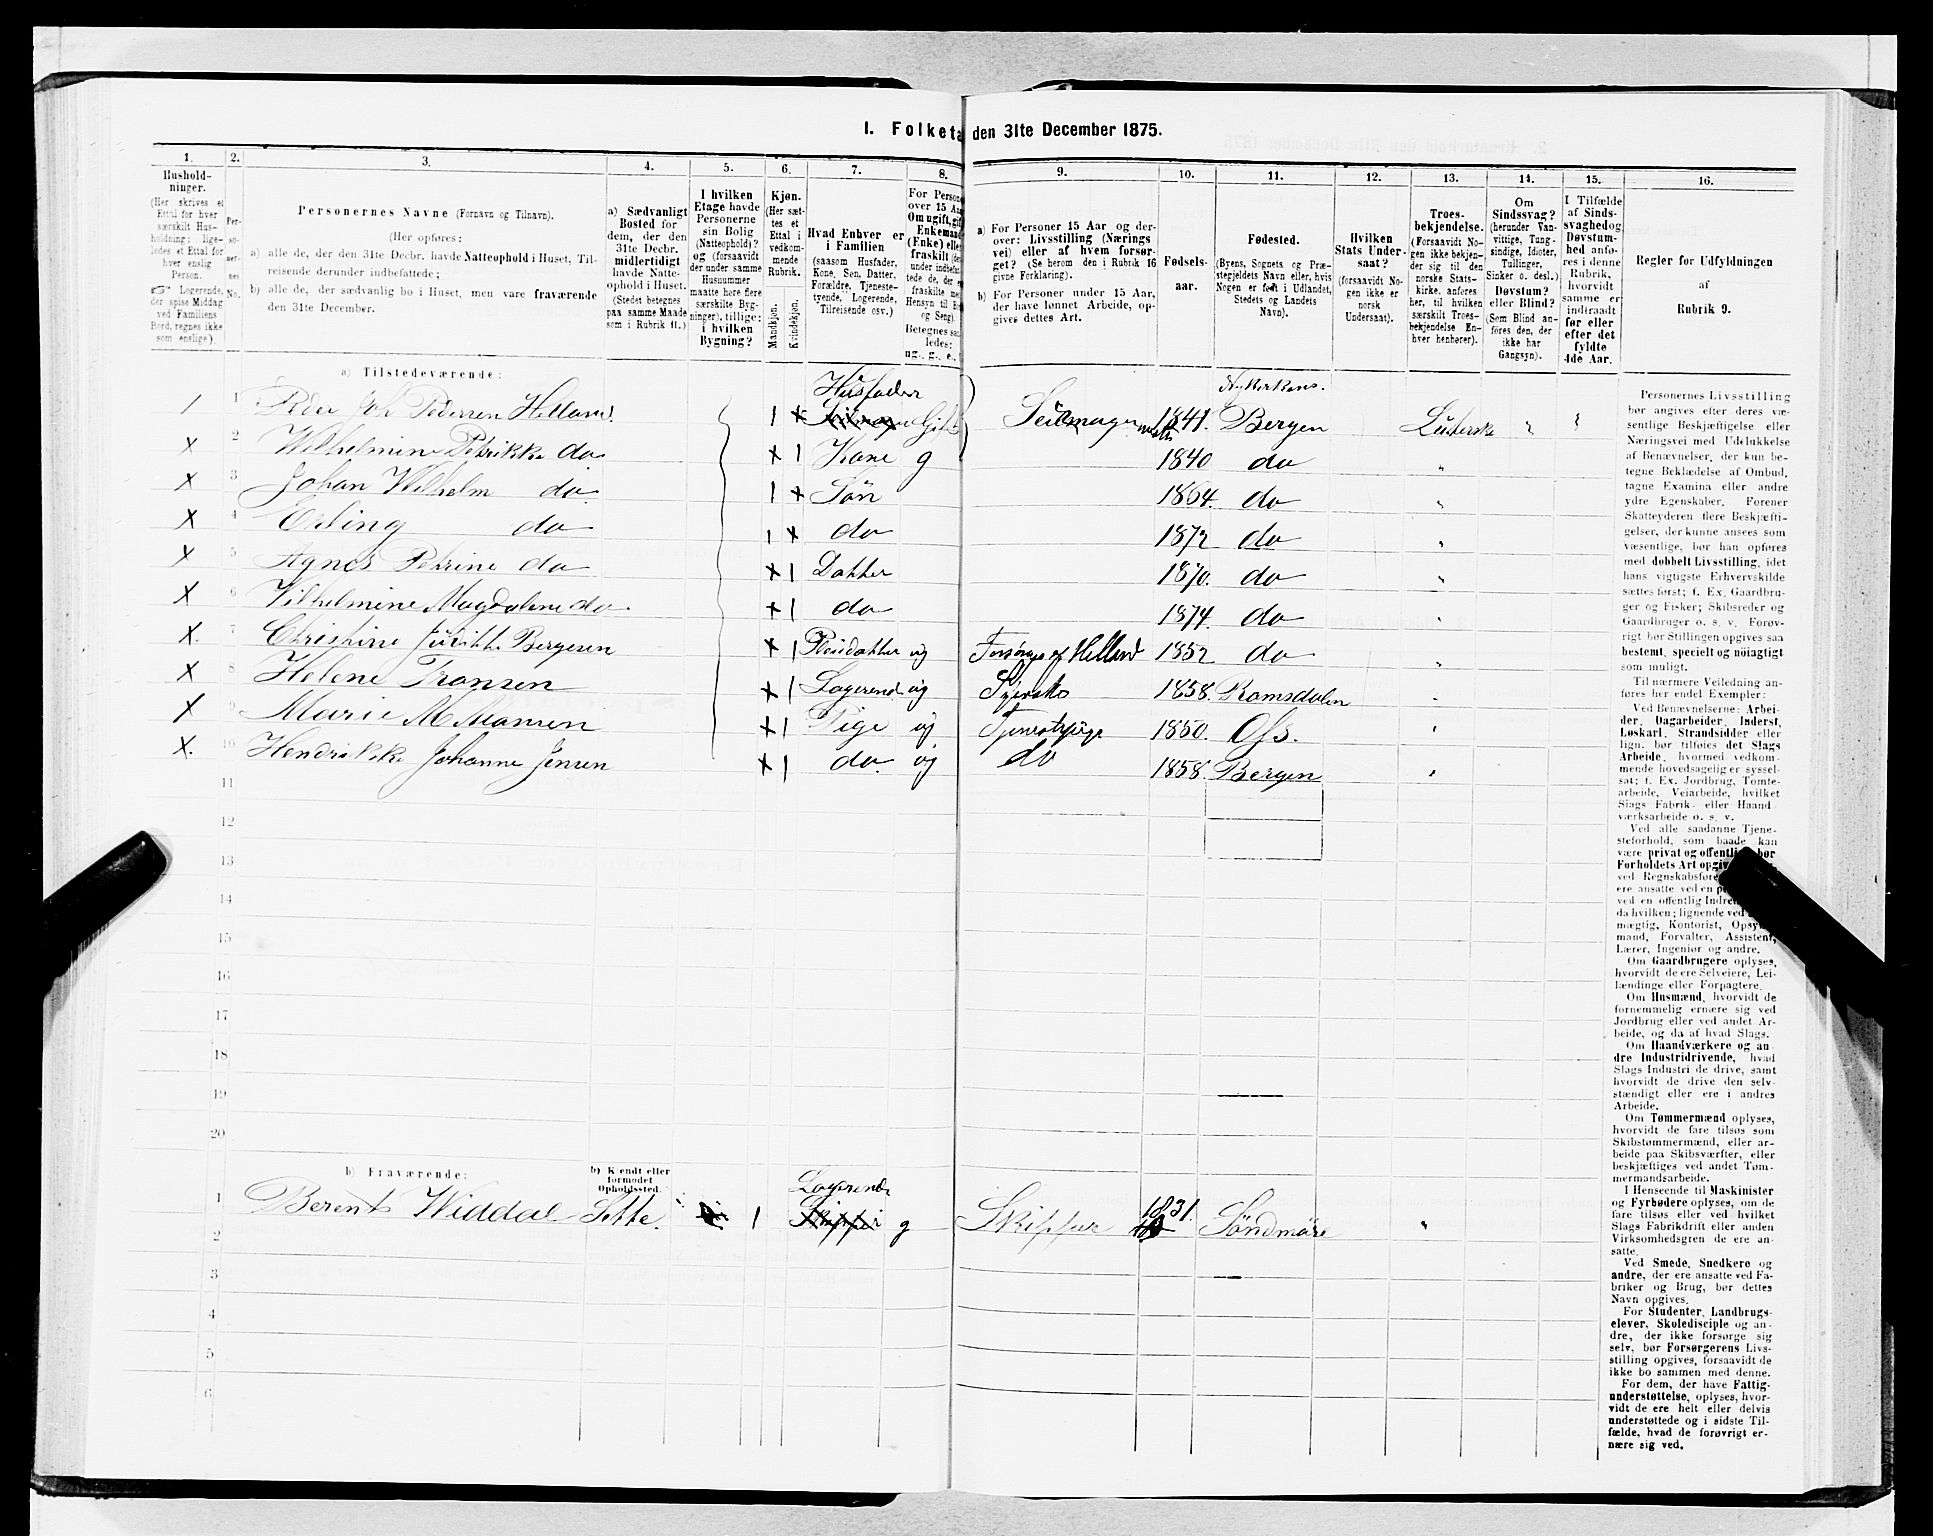 I. Folketa den 31te December 1875.
1. 2. 3. 4. 5. 6. 7. 8. 9. 10. 11. 12. 13. 14. 15. 16.
Hushold-
ninger.
(Her skrives et
Ettal for hver
særskilt Hus-
holdning; lige-
ledes et Ettal for
hver enslig
Person.
☞ Logerende,
der spise Middag
ved Familiens
Bord, regnes ikke
som enslige.)
Per-
so-
ner-
nes
No.
Personernes Navne (Fornavn og Tilnavn).
(Her opføres:
a) alle de, der den 31te Decbr. havde Natteophold i Huset, Til-
reisende derunder indbefattede;
b) alle de, der sædvanlig bo i Huset, men vare fraværende
den 31te December.
a) Sædvanligt
Bosted for
dem, der den
31te Decbr.
midlertidigt
havde Natte-
ophold i Huset.
(Stedet betegnes
paa samme Maade
som i Rubrik 11.)
I hvilken
Etage havde
Personerne
sin Bolig
(Natteophold)?
og (forsaavidt
der under samme
Husnummer
maatte høre flere
særskilte Byg-
ninger), tillige:
i hvilken
Bygning?
Kjøn.
(Her sæt-
tes et
Ettal i
vedkom-
mende
Rubrik.
Mandkjøn.
Kvindekjøn.
Hvad Enhver er
i Familien
(saasom Husfader,
Kone, Søn, Datter,
Forældre, Tjeneste-
tyende, Logerende,
Tilreisende osv.)
For Person
over 15 Aa
Om ugift, gif
Enkemand
(Enke) elle
fraskilt (de
under indbefat
tede de, der e
fraskilte med
Hensyn til B
og Seng).
Betegnes saa
ledes:
ug., g., e.,
a) For Personer 15 Aar og der-
over: Livsstilling (Nærings
vei) eller af hvem forsør-
get? (Se herom den i Rubrik 16
givne Forklaring).
b) For Personer under 15 Aar,
der have lønnet Arbeide, op-
gives dettes Art.
Fødsels-
aar.
Fødested.
(Byens, Sognets og Præ-
stegjeldets Navn eller, hvis
Nogen er født i Udlandet,
Stedets og Landets
Navn).
Hvilken
Stats Under-
saat?
(forsaavidt No-
gen ikke er
norsk
Undersaat).
Troes-
bekjendelse.
(Forsaavidt No-
gen ikke bekjen-
der sig til den
norske Stats-
kirke, anføres
her, til hvilken
særskilt Troes-
bekjendelse En-
hver henhører).
Om
Sindssvag?
(herunder Van-
vittige, Tung-
sindige, Idioter,
Tullinger,
Sinker o. desl.)
Døvstum?
eller Blind?
(Som Blind an-
føres den, der
ikke har
Gangsyn).
I Tilfælde
af Sinds-
svaghed og
Døvstum-
hed anfø-
res i denne
Rubrik,
hvorvidt
samme er
indtraadt
før eller
efter det
fyldte
4de Aar.
Regler for Udfyldningen
af
Rubrik 9.
a) Tilstedeværende:
Husfader Nykirkens.
1 1 Peder Joh Pedersen Helland 1 x Gift Seilmager 1841. Bergen Lutherske " "
x 2 Wilhelmine Petrikke do x 1 Kone g 1840 do "
x 3 Johan Wilhelm do. 1 x Søn 1864. do "
x 4 Erling do 1 x do 1872 do "
x 5 Agnes Petrine do x 1 Datter 1870. do "
x 6 Vilhelmine Magdalene do x 1 do 1874. do "
x. 7 Christine Juditte Bergesen x 1 Pleiedatter ug Forsørges af Helland 1852 do "
x 8 Helene Transen x 1 Logerend ug 1858. Romsdalen "
x 9 Marie M Monsen x 1 Pige ug Tjenestpige 1850. Oss. "
x. 10 Hendrikke Johanne Jensen x 1 do. ug do 1858. Bergen "
11
12
13
14
15
16
17
18
19
20
b) Fraværende:
b) Kendt eller
formodet
Opholdssted.
Logerende
1 Berent Widdal Sette. 1 g Skipper 1831. Søndmøre "
2
3
4
5
6
Personernes Livsstilling
bør angives efter deres væ-
sentlige Beskjæftigelse eller
Næringsvei med Udelukkelse
af Benævnelser, der kun be-
tegne Beklædelse af Ombud,
tagne Examina eller andre
ydre Egenskaber. Forener
Skatteyderen flere Beskjæfti-
gelser, der kunne ansees som
væsentlige, bør han opføres
med dobbelt Livsstilling, idet
hans vigtigste Erhvervskilde
sættes først; f. Ex. Gaardbru-
ger og Fisker; Skibsreder og
Gaardbruger o. s. v. Forøv-
rigt bør Stillingen opgives saa
bestemt, specielt og nöiagtigt
som muligt.
Til nærmere Veiledning an-
føres her endel Exempler:
Ved Benævnelserne: Arbei-
der, Dagarbeider, Inderst,
Løskarl, Strandsidder eller
lign. bør tilføies det Slags
Arbeide, hvormed vedkom-
mende hovedsagelig er syssel-
sat; f. Ex. Jordbrug, Tomte-
arbeide, Veiarbeide, hvilket
Slags Fabrik- eller Haand-
værksarbeide o. s. v.
Ved alle saadanne Tjene-
steforhold, som baade kan
være privat og offentlig, bør
Forholdets Art opgiv
ved Regnskabsfør
ere ansatte ved en p
ved en offentlig Indre
da hvilken; lignende ved
mægtig, Kontorist, Opsy
mand, Forvalter, Assistent,
Lærer, Ingeniør og andre.
Om Gaardbrugere oplyses,
hvorvidt de ere Selveiere, Lei-
lændinge eller Forpagtere.
Om Husmænd, hvorvidt de
fornemmelig ernære sig ved
Jordbrug eller ved andet Ar-
beide, og da af hvad Slags.
Om Haandværkere og an-
dre Industridrivende, hvad
Slags Industri de drive, samt
hvorvidt de drive den selv-
stændigt eller ere i andres
Arbeide.
Om Tømmermænd oplyses,
hvorvidt de fare tilsøs som
Skibstømmermænd, eller ar-
beide paa Skibsværfter, eller
beskjæftiges ved andet Tøm-
mermandsarbeide.
I Henseende til Maskinister
og Fyrbødere oplyses, om de
fare tilsøs eller ved hvilket
Slags Fabrikdrift eller anden
Virksomhedsgren de ere an-
satte.
Ved Smede, Snedkere og
andre, der ere ansatte ved Fa-
briker og Brug, bør dettes
Navn opgives.
For Studenter, Landbrugs-
elever, Skoledisciple og an-
dre, der ikke forsørge sig
selv, bør Forsørgerens Livs-
stilling opgives, forsaavidt de
ikke bo sammen med denne.
For dem, der have Fattig-
understøttelse, oplyses, hvor-
vidt de ere helt eller delvis
understøttede og i sidste Til-
fælde, hvad de forøvrigt er-
nære sig ved.